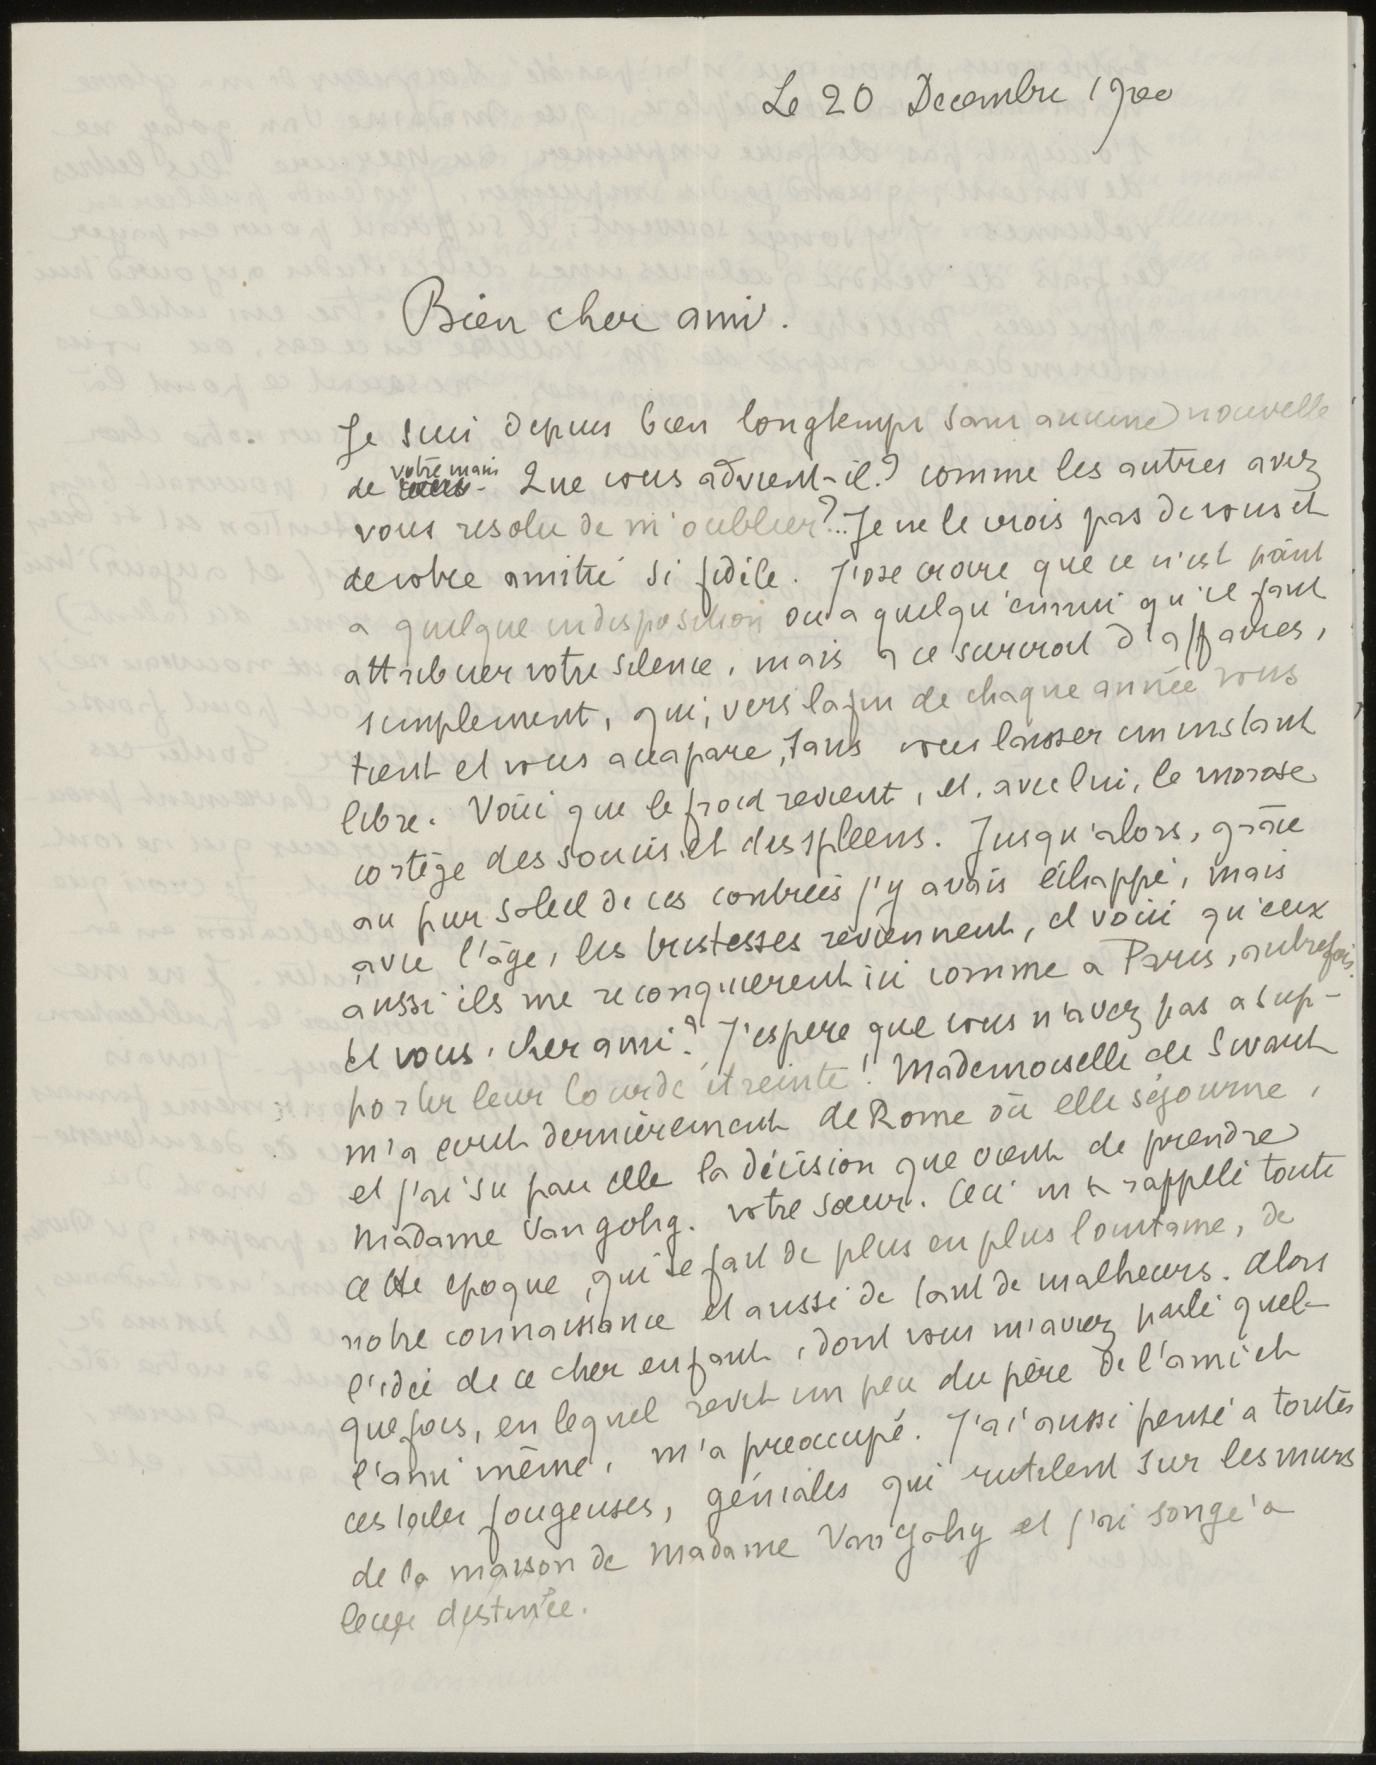 Le 20 Decembre 1900
Bien cher ami.
Je suis depuis bien longtemps sans aucune nouvelle
de votre main Que vous advient-il? comme les autres avez
vous resolu de m'oublier?.. Je ne le crois pas de vous et
de votre amitié si fidèle. J'ose croire que ce n'est point
a quelque indisposition ou a quelqu'ennui qu'il faut
attribuer votre silence, mais a ce surcroit d'affaires,
simplement, qui, vers la fin de chaque année vous
tient et vous accapare, sans vous laisser un instant
libre. Voici que le froid revient, et, avec lui, le morose
cortège des soucis et des spleens. Jusqu'alors, grâce
au pur soleil de ces contrées j'y avais échappé, mais
avec l'âge, les tristesses reviennent, et voici qu'eux
aussi ils me reconquierent ici comme a Paris, autrefois.
Et vous, cher ami? J'espere que vous n'avez pas a sup-
porter leur lourde étreinte! Mademoiselle de
m'a ecrit dernièrement de Rome où elle séjourne,
et j'ai su par elle la décision que vient de prendre
Madame Van gohg. votre sœur. Ceci m'a rappelé toute
cette epoque, qui se fait de plus en plus lointaine, de
notre connaissance et aussi de tant de malheurs. Alors
l'idée de ce cher enfant, dont vous m'aviez parlé quel-
quefois, en lequel revit un peu du père de l'ami et
l'ami même, m'a preoccupé. J'ai aussi pensé a toutes
ces toiles fougeuses, géniales qui rutilent sur les murs
de la maison de Madame Van Gohg et j'ai songé a
leur destinée.